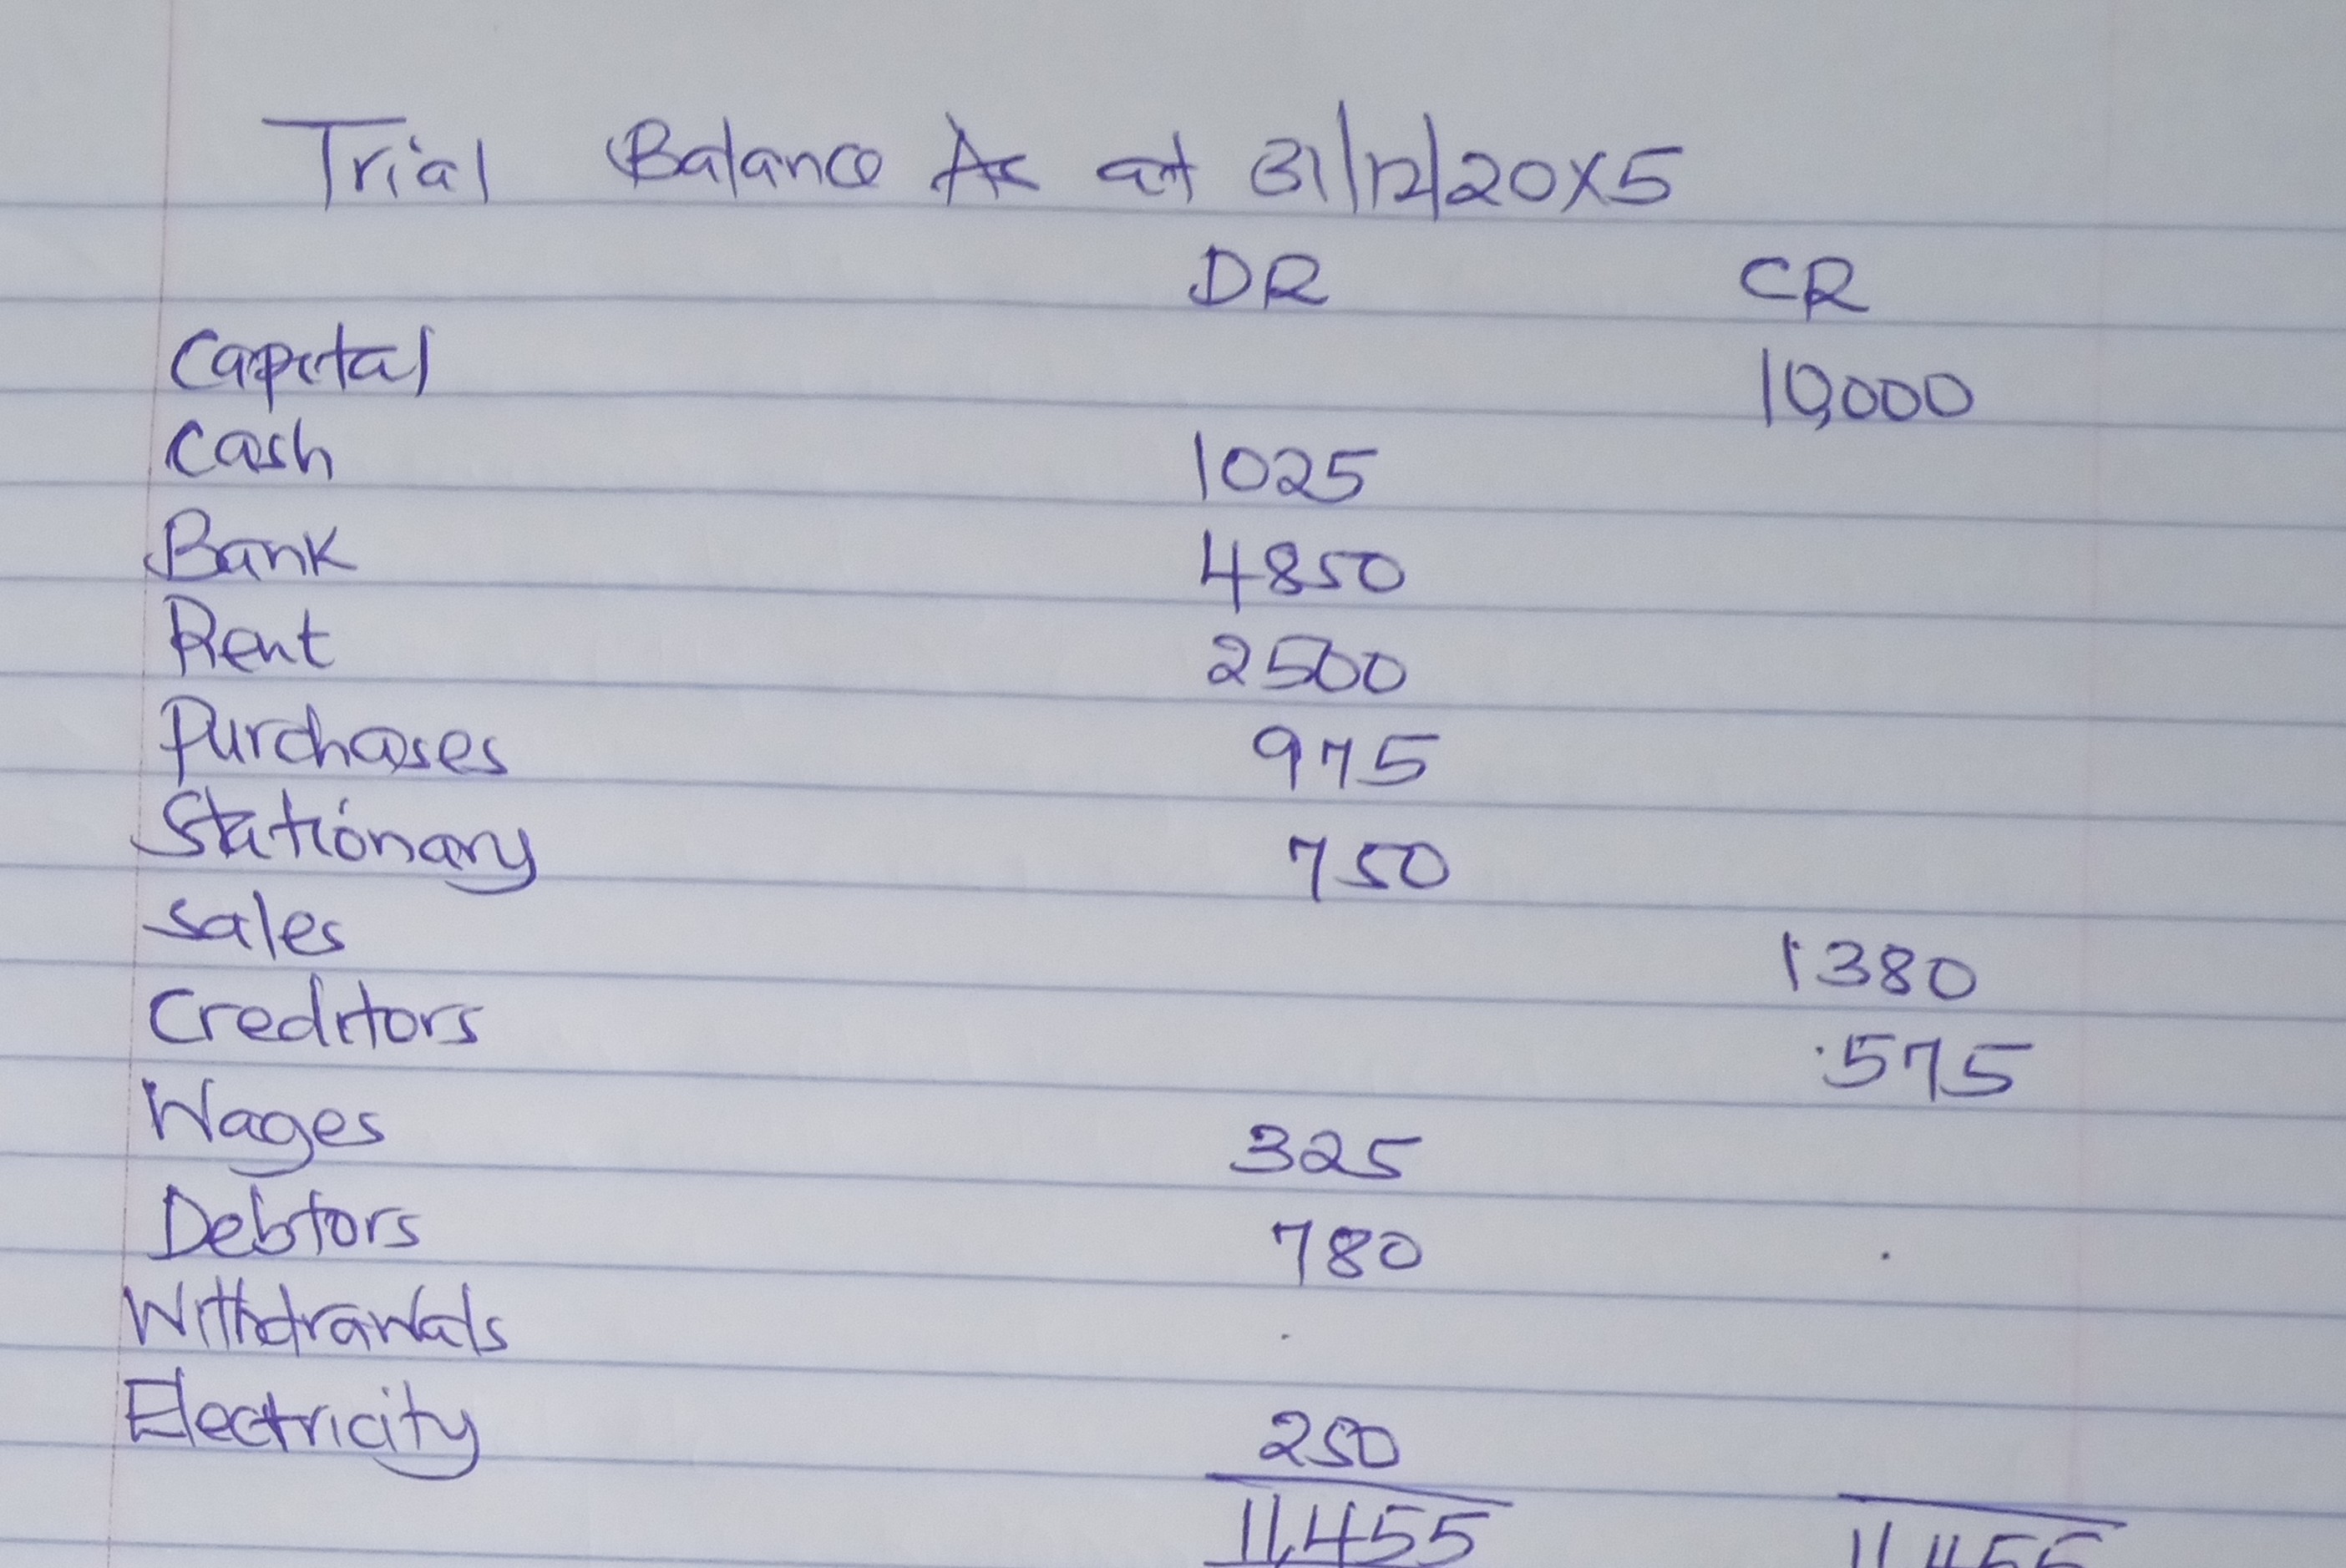 Trial Balance As at 31/12/20X5
DR CR
Capital 10,000
Cash 1025
Bank 4850
Rent 2500
Purchases 975
Stationary 750
Sales 1380
Creditors 575
Wages 325
Debtors 780
Withdrawals
Electricity 250
11,455 11,455